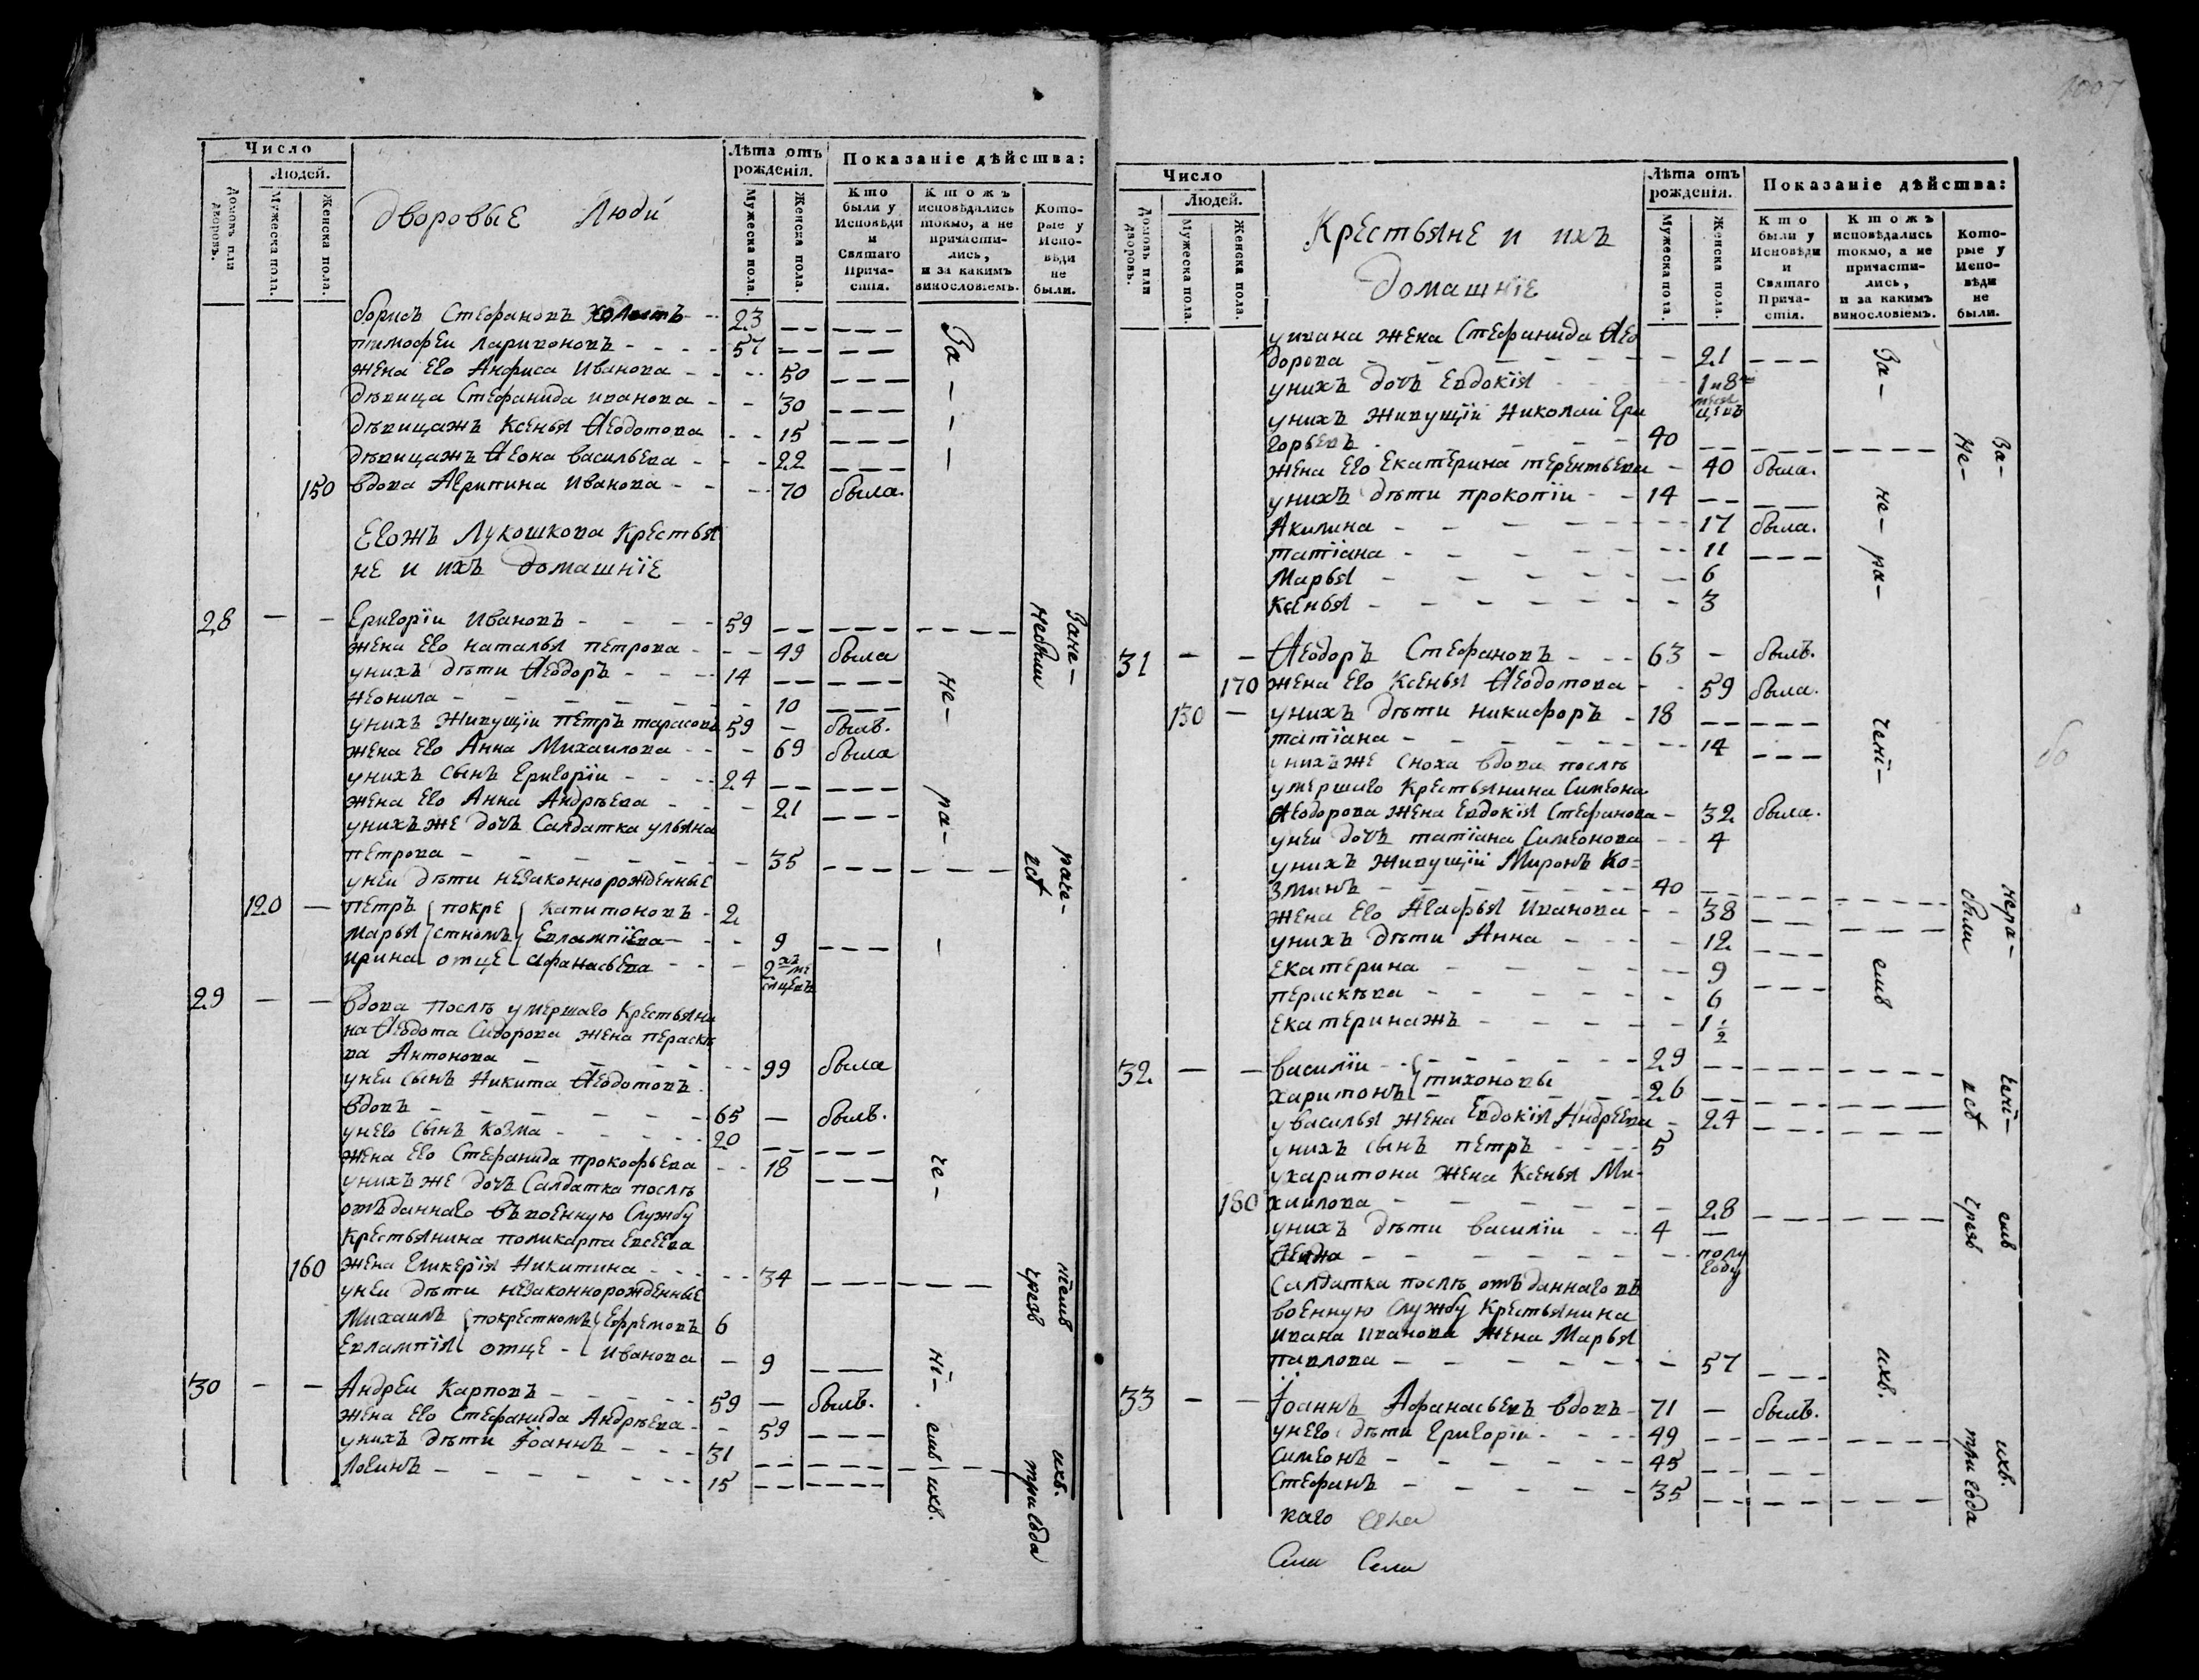 Число
Людей.
Домовъ или дворовъ.
Мужеска пола.
Женска пола.
Дворовые Люди
Лѣта отъ рожденія.
Мужеска пола.
Женска пола.
Показаніе дѣйства:
Кто были у Исповѣди и Святаго Прича- стія.
Ктожъ исповѣдались токмо, а не причасти- лись, и за какимъ винословіемъ.
Кото- рые у Испо- вѣди не были.
борисъ Стефановъ холостъ - - 23
тимофеи Ларионовъ - - - - 57
жена его Анфиса Иванова - - 50
дѣвица Стефанида иванова - - 30
дѣвицажъ Ксенья Ѳеодотова - - 15
дѣвицажъ Ѳеона васильева - - 22
150 вдова Агрипина Иванова - - 70 была.
Егожъ Лукошкова Крестья
не и ихъ домашніе
28 — — Григоріи Ивановъ - - - - 59
жена его наталья петрова - - - 49 была
унихъ дѣти Ѳеодоръ - - - 14
неонила - - - - - - 10
унихъ живущіи петръ тарасовъ 59 - былъ.
жена его Анна Михаилова - - - 69 была
унихъ сынъ григоріи - - - - 24
жена его Анна Андрѣева - - - 21
унихъ же дочь Салдатка ульяна
петрова - - - - - - - 35
унеи дѣти незаконнорожденные
120 — петръ покре капитоновъ - 2
Марья стномъ Евлампіева - - - 9
ирина отце афанасьева - - - 2хъ ме
сяцевъ
29 — — вдова послѣ умершаго крестьяни
на Ѳеодота Сидорова жена пераскѣ
ва Антонова - - - - - - 99 была
унеи сынъ Никита Ѳеодотовъ
вдовъ - - - - - - - 65 — былъ.
унего сынъ козма - - - - - 20
жена его Стефанида прокофьева - - 18
унихъ же дочь Салдатка послѣ
отъданнаго въ военную службу
крестьянина поликарпа Евсеева
160 жена гликерія Никитина - - - - 34
унеи дѣти незаконнорожденные
Михаилъ покрестномъ Ефремовъ 6
Евлампія отце - Иванова — 9
30 - - Андреи Карповъ - - - - - 59 — былъ.
жена его Стефанида Андрѣева - - 59
унихъ дѣти Іоаннъ - - - 31
Логинъ - - - - - - - - 15
За-
не-
ра-
че-
ні-
емъ ихъ.
Зане-
раче-
ніемъ
ихъ.
Небыли
чрезъ
три года
1007
Число
Людей.
Домовъ или дворовъ.
Мужеска пола.
Женска пола.
Крестьяне и ихъ
домашніе
Лѣта отъ рожденія.
Мужеска пола.
Женска пола.
Показаніе дѣйства:
Кто были у Исповѣди и Святаго Прича- стія.
Ктожъ исповѣдались токмо, а не причасти- лись, и за какимъ винословіемъ.
Кото- рые у Испо- вѣди не были.
уивана жена Стефанида Ѳео
дорова - - - - - - - 21
унихъ дочь Евдокія - - - - 1 и 8
меся
цевъ
унихъ живущіи Николаи Гри
горьевъ - - - - - - 40
жена его Екатерина терентьева - 40 была.
унихъ дѣти прокопіи - - 14
Акилина - - - - - - - 17 была.
татіана - - - - - - - 11
Марья - - - - - - - 6
Ксенья - - - - - - - 3
31 — — Ѳеодоръ Стефановъ - - - 63 - былъ.
170 жена его Ксенья Ѳеодотова - - 59 была.
130 — унихъ дѣти никифоръ - 18
татіана - - - - - - - 14
унихъ же сноха вдова послѣ
умершаго крестьянина Симеона
Ѳеодорова жена Евдокія Стефанова - 32 была.
унеи дочь татіана Симеонова - - 4
унихъ живущіи Миронъ Ко=
зминъ - - - - - - - 40
жена его Агафья Иванова - - 38
унихъ дѣти Анна - - - - 12
Екатерина - - - - - - 9
пераскѣва - - - - - - 6
Екатеринажъ - - - - - 1 1/2
32 — — василіи - - - - - - - 29
харитонъ тихоновы - - 26
увасилья жена Евдокія Андреева - 24
унихъ сынъ петръ - - - - 5
ухаритона жена Ксенья Ми-
180 хаилова - - - - - - - 28
унихъ дѣти василіи - - 4 —
- - - - - - - полу
году
Салдатка послѣ отъданнаго въ
военную службу крестьянина
ивана иванова жена Марья
павлова - - - - - - - 57
33 - — Іоаннъ Афанасьевъ вдовъ - 71 — былъ.
унего дѣти Григоріи - - - - 49
Симеонъ - - - - - - 45
Стефанъ - - - - - - 35
За-
не-
ра-
чені-
емъ
ихъ.
За-
нера-
чені-
емъ
ихъ.
Не-
были
чрезъ
три года